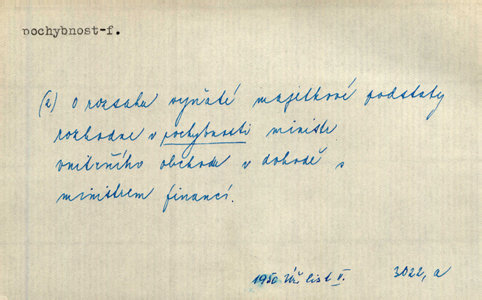 pochybnost-f.
(2) O rozsahu vyňaté majetkové podstaty
rozhodne v pochybnosti ministr
vnitřního obchodu v dohodě s
ministrem financí.
1950 Úř. list II. 3022, a